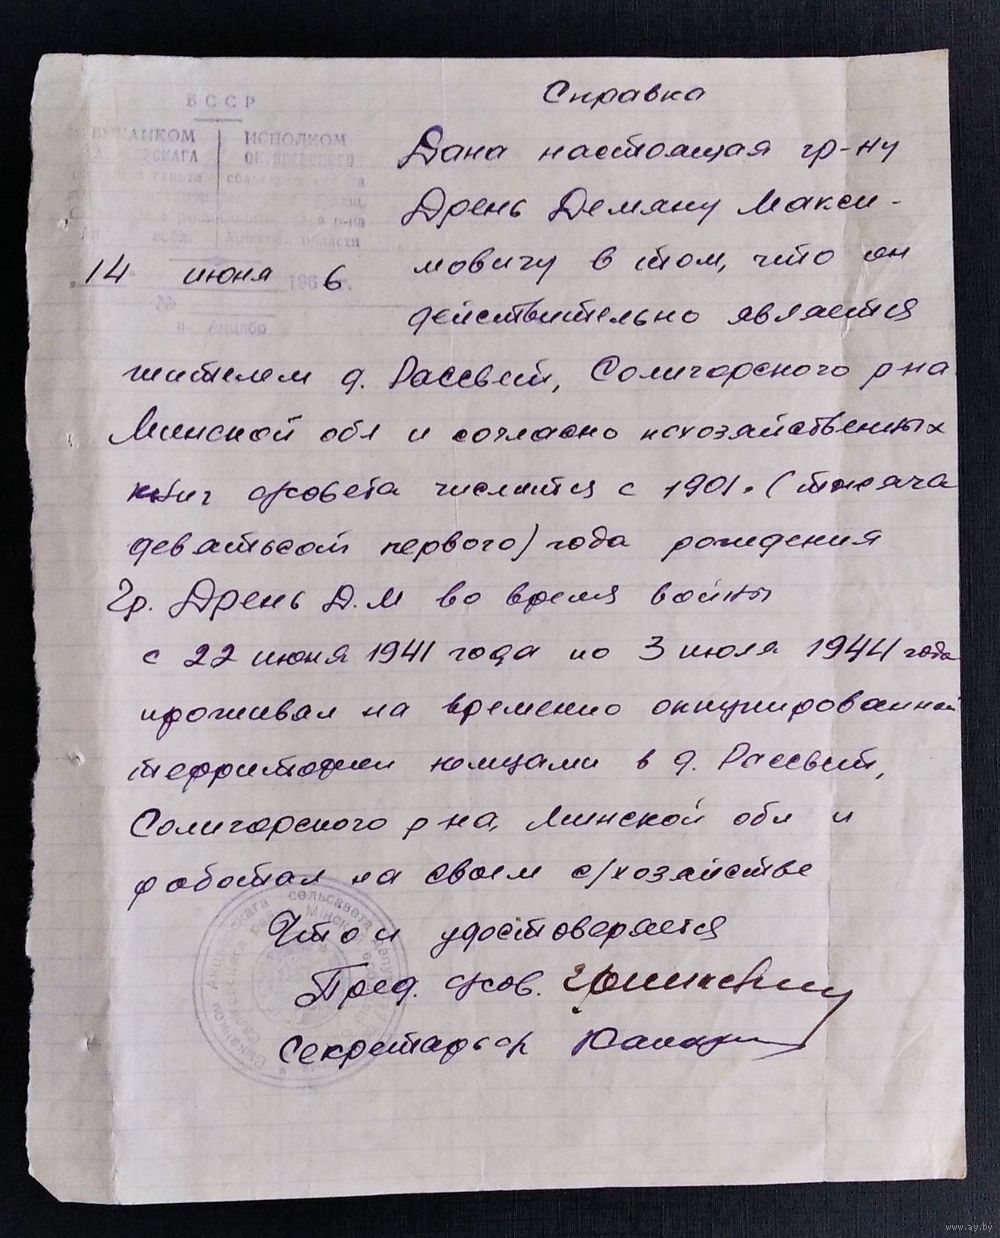 Справка
БССР
ВЫКАНКОМ
ИСПОЛКОМ
Дана настоящая гр-ну
Дрень Демяну Макси-
мовичу в том, что он
14 июня 1966 г.
№
действительно является
жителем д. Рассвет, Солигорского р-на
Минской обл и согласно похозяйственных
книг с/совета числится с 1901. (тысяча
девятьсот первого) года рождения
Гр. Дрень Д.М во время войны
с 22 июня 1941 года по 3 июля 1944 года
проживал на временно оккупированной
территории немцами в д. Рассвет,
Солигорского р-на, Минской обл и
работал на своем с/хозяйстве
Что и удостоверяется
Пред. с/сов.
Секретарь с/с
www.ay.by